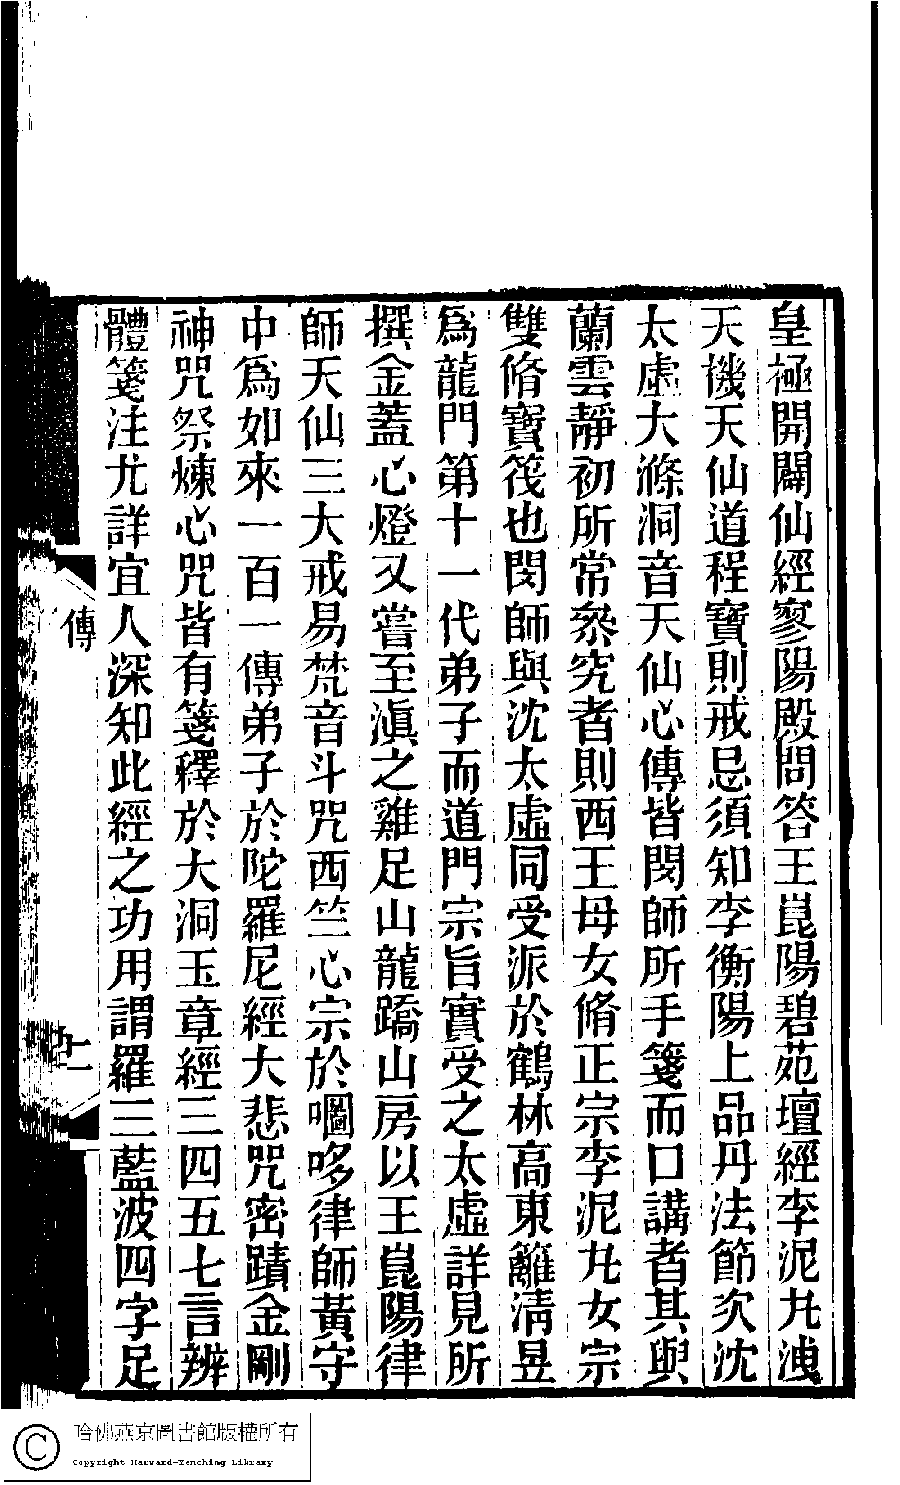 皇極開闢仙經寥陽殿問答王崑陽碧苑壇經李泥丸洩
天機天仙道程寶則戒忌須知李衡陽上品丹法節次沈
太虛大滌洞音天仙心傳皆閔師所手箋而口講者其與
蘭雲靜初所常叅究者則西王母女脩正宗李泥丸女宗
雙脩寶筏也閔師與沈太虛同受派於鶴林高東籬淸昱
爲龍門第十一代弟子而道門宗旨實受之太虛詳見所
撰金蓋心燈又嘗至滇之雞足山龍蹻山房以王崑陽律
師天仙三大戒易梵音斗咒西竺心宗於嗰哆律師黃守
中爲如來一百一傳弟子於陀羅尼經大悲咒密蹟金剛
神咒祭煉心咒皆有箋釋於大洞玉章經三四五七言辨
體箋注尤詳宜人深知此經之功用謂羅三藍波四字足
傳
哈佛燕京圖書館版權所有
Copyright Harvard-Yenching Library